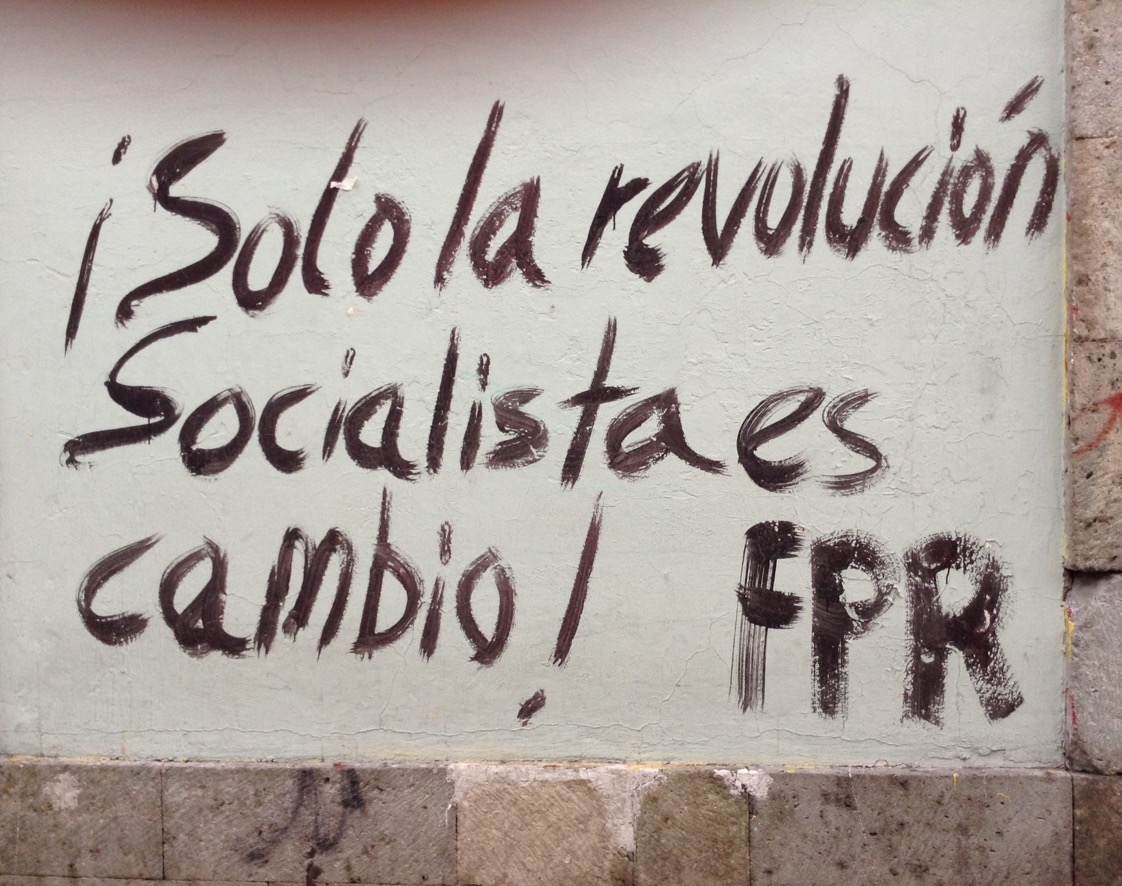 ¡Solo la revolución
Socialista es
cambio! FPR